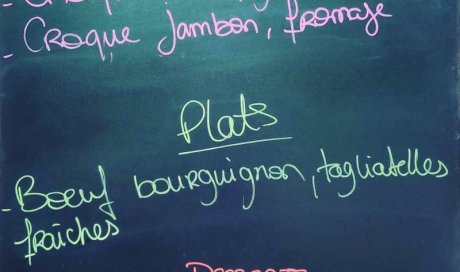 - Croque Jambon, fromage
Plats
- Boeuf bourguignon, tagliatelles
fraîches